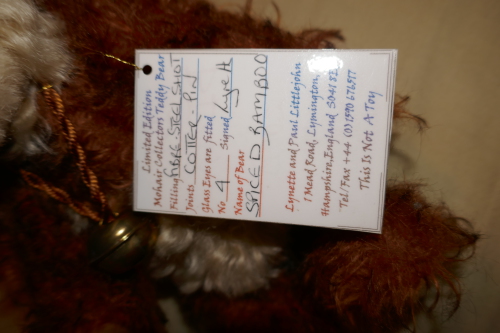 Limited Edition
Mohair Collectors Teddy Bear
Filling FIBRE-STEEL SHOT
Joints COTTER-PIN
Glass Eyes are fitted
No. 4 Signed
Name of Bear
SPICED BAMBOO
Lynette and Paul Littlejohn
1 Mead Road, Lymington,
Hampshire, England SO41 8
Tel/Fax +44 (0)1590 676977
This Is Not A Toy